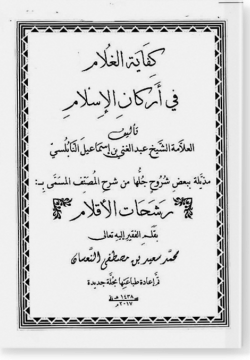 كفاية الغلام
في أركان الإسلام
تأليف
العلامة الشيخ عبد الغني بن إسماعيل النابلسي
مذيلة ببعض شروح جلها من شرح المصنف المسمى بـ:
رشحات الأقلام
بقلم الفقير إليه تعالى
محمد سعيد بن مصطفى النعسان
قرأ إعادة طباعتها بحلة جديدة
١٤٣٨ هـ
٢٠١٧ م